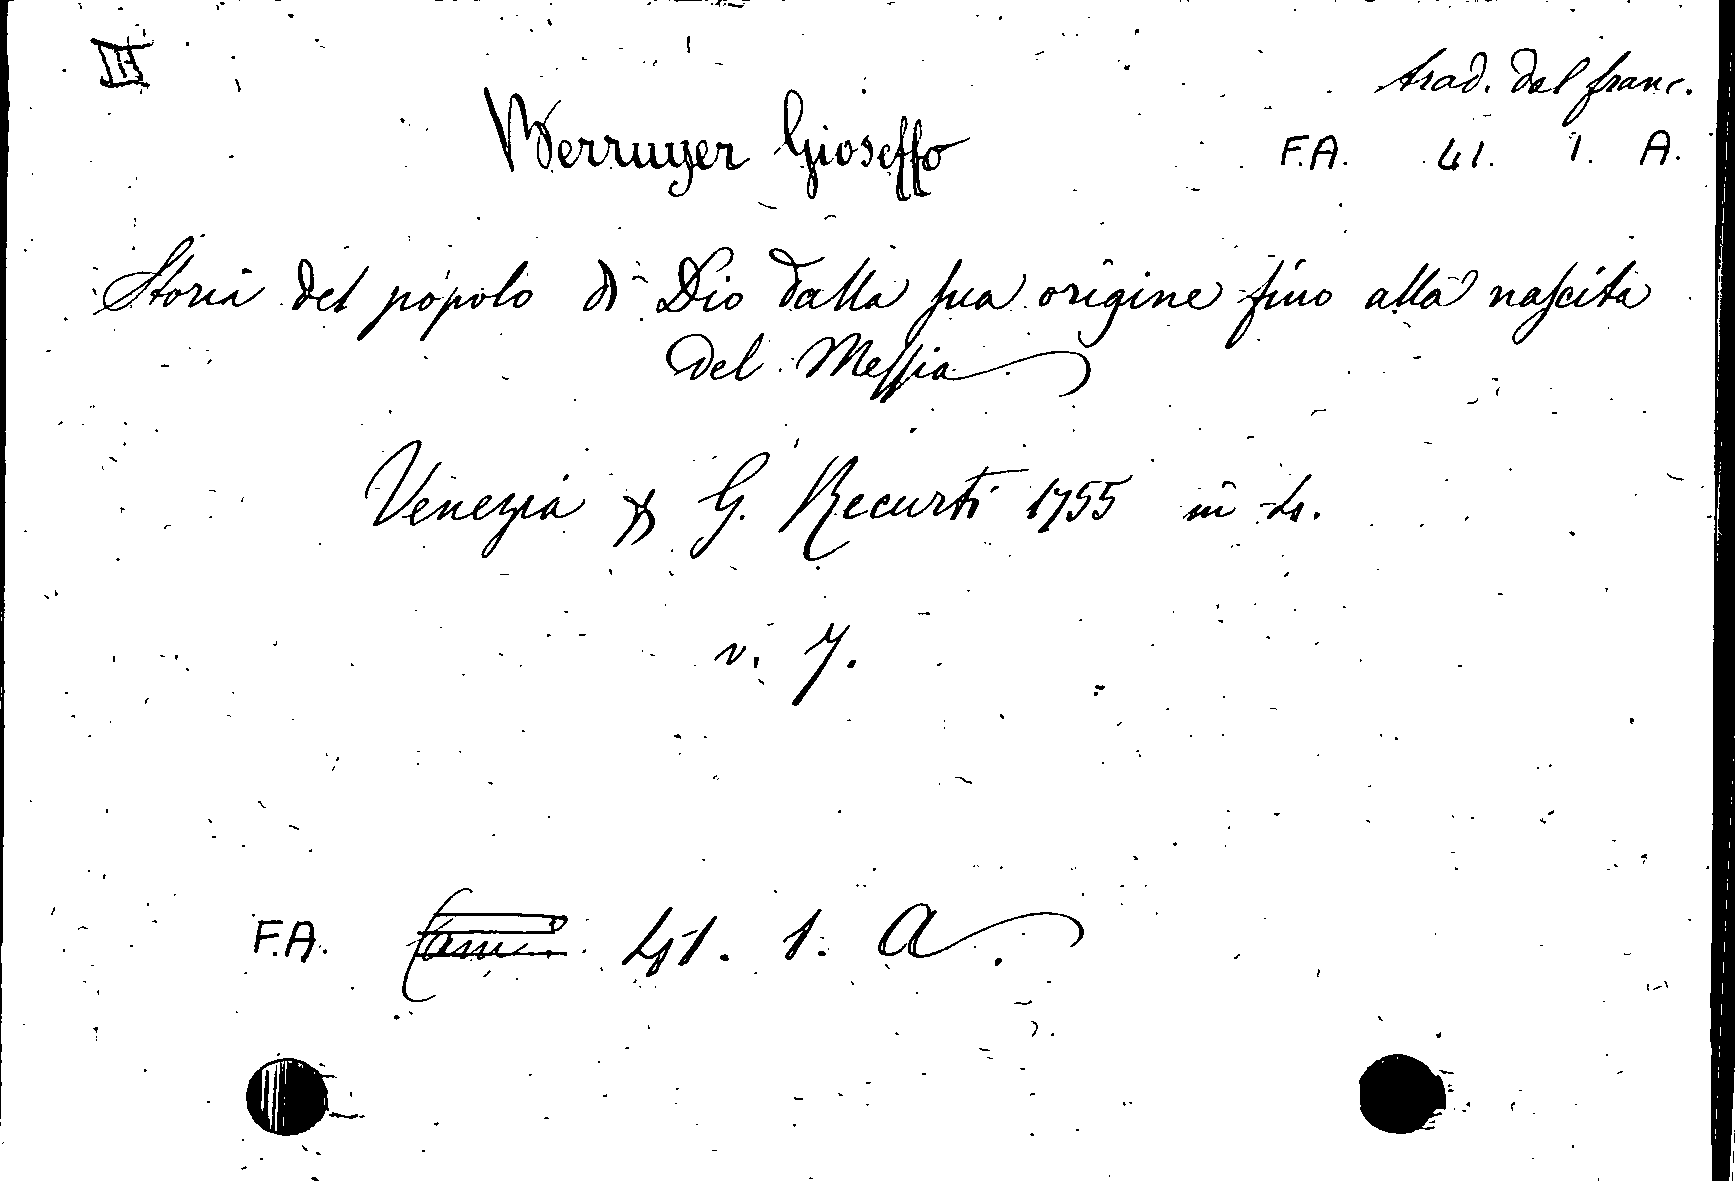 trad. dal franc.
Berruyer Gioseffo
F.A. 41. 1. A.
Storia del popolo di Dio dalla sua origine fino alla nascita
del Messia
Venezia G. Recurti 1755 in 4.
v. 7.
F.A. 41. 1. A.